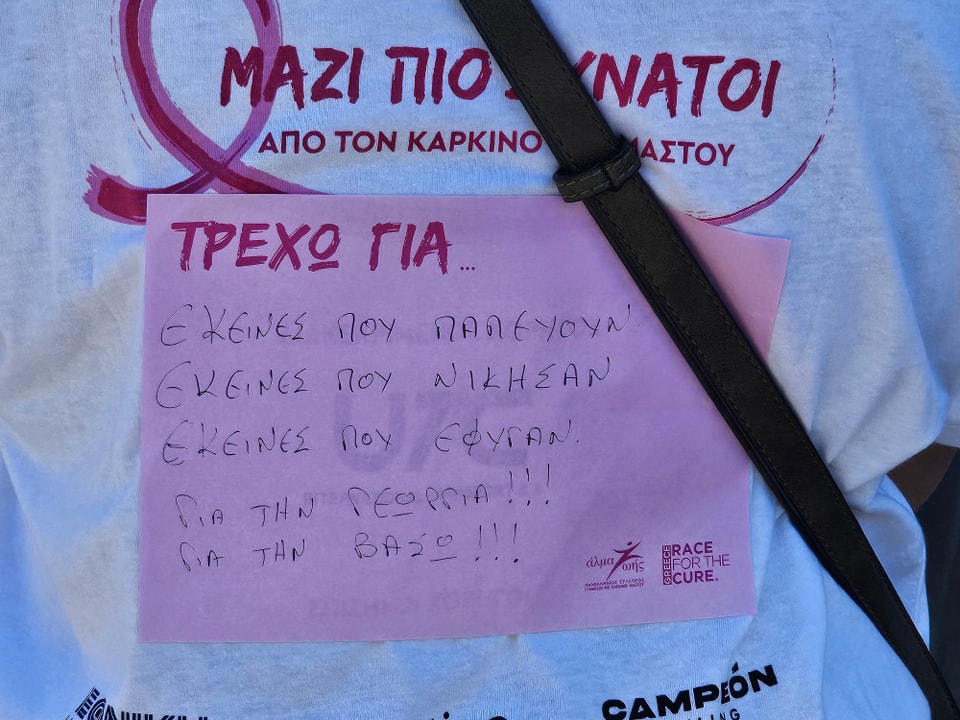 ΜΑΖΙ ΠΙΟ ΥΝΑΤΟΙ
ΑΠΟ ΤΟΝ ΚΑΡΚΙΝΟ ΜΑΣΤΟΥ
ΤΡΕΧΩ ΓΙΑ...
ΕΚΕΙΝΕΣ ΠΟΥ ΠΑΠΕΥΟΥΝ.
ΕΚΕΙΝΕΣ ΠΟΥ ΝΙΚΗΣΑΝ
ΕΚΕΙΝΕΣ ΠΟΥ ΕΦΥΓΑΝ.
ΓΙΑ ΤΗΝ ΓΕΩΡΓΙΑ!!!
ΓΙΑ ΤΗΝ ΒΑΣΩ!!!
άλμα ζωής
ΠΑΝΕΛΛΗΝΙΟΣ ΣΥΛΛΟΓΟΣ
ΓΥΝΑΙΚΩΝ ΜΕ ΚΑΡΚΙΝΟ ΜΑΣΤΟΥ
GREECE
RACE
FOR THE
CURE®
CAMPEÓN